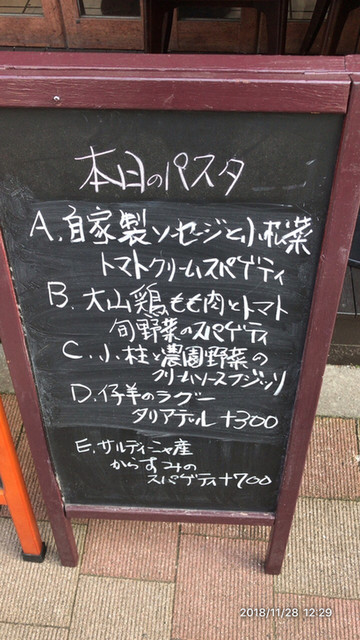 本日のパスタ
A. 自家製ソーセージと小松菜
トマトクリームスパゲティ
B. 大山鶏もも肉とトマト
旬野菜のスパゲティ
C. 小柱と農園野菜の
クリームソースフジッリ
D. 仔羊のラグー
タリアテッレ +300
E. サルディーニャ産
からすみの
スパゲティ +700
2018/11/28 12:29